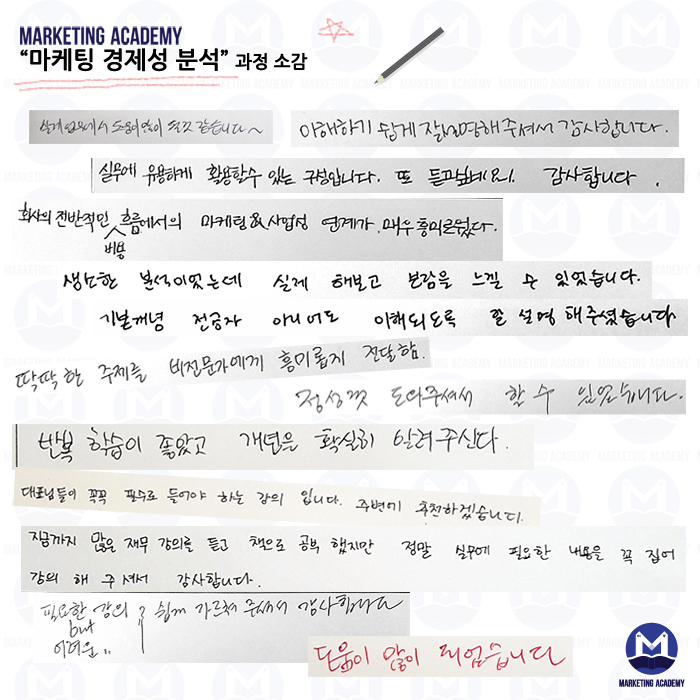 MARKETING ACADEMY
“마케팅 경제성 분석” 과정 소감
실제 업무에서 도움이 많이 될 것 같습니다~
이해하기 쉽게 잘 설명해 주셔서 감사합니다.
실무에 유용하게 활용할수 있는 구성입니다. 또 듣고싶네요!. 감사합니다.
회사의 전반적인 흐름에서의 마케팅&사업성 연계가, 매우 흥미로웠다.
비용
생소한 분석이었는데 실제 해보고 보람을 느낄 수 있었습니다.
기본개념 전공자 아니어도 이해되도록 잘 설명해주셨습니다
딱딱한 주제를 비전문가에게 흥미롭게 전달함.
정성껏 도와주셔서 할 수 있었습니다.
반복 학습이 좋았고 개념은 확실히 알려주신다.
대표님들이 꼭꼭 필수로 들어야 하는 강의 입니다. 주변에 추천하겠습니다.
지금까지 많은 재무 강의를 듣고 책으로 공부 했지만 정말 실무에 필요한 내용을 꼭 집어
강의 해 주셔서 감사합니다.
필요한 강의 쉽게 가르쳐 주셔서 감사합니다
but
어려운..
도움이 많이 되었습니다
MARKETING ACADEMY